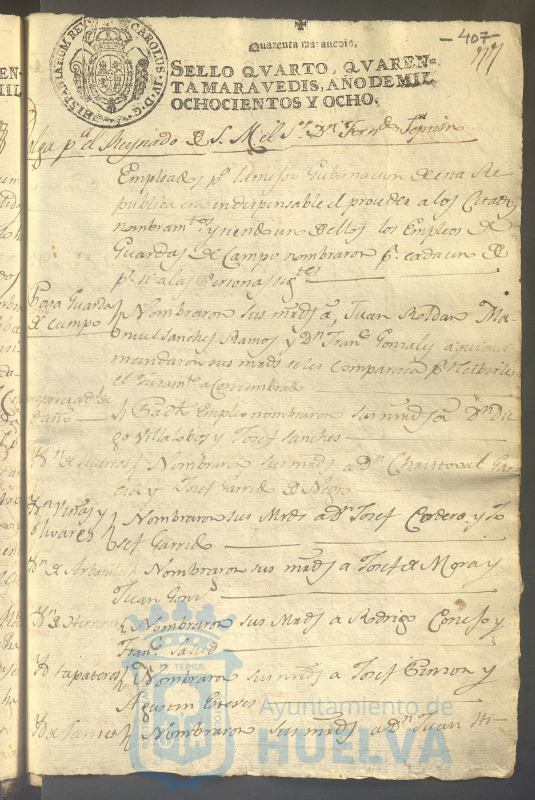 -407-
Quarenta maravedis.
HISPANIARUM REX CAROLUS IV D.G.
SELLO QVARTO, QVAREN-
TAMARAVEDIS, AÑO DE MIL
OCHOCIENTOS Y OCHO.
Valga pa. el Reynado de S. M. el Sr. Dn. Ferndo. Septimo
Empleads y pa. la mejor Gubernacion de esta Re
publica era indispensable el proceder a los Citads
nombramtos. y siendo uno de ellos los Empleos de
Guardas de Campo nombraron pa. cada uno de
a las Personas sigtes.
Guarda
de campo
Nombraron sus mrds. a Juan Roldan Ma-
nuel Sanches Ramos y Dn. Franco. Gonzales a quienes
mandaron sus mrds. se les comparesca pa. recibirles
el Juramto. acostumbrado
daño
Empleo nombraron sus mrds. a Dn. Die
go Villalobos y Josef Sanches
Yd. de Huertos
Nombraron sus mrds. a Dn. Christoval Gar
cia y Josef Garrido de Negro
Yd. Viñas y
Olivares
Nombraron sus Mrds. a Dn. Josef Cordero y Jo
sef Garrido
Yd. de
Nombraron sus mrds. a Josef de Mora y
Juan Gonz.
Yd. de Herreros
Nombraron sus Mrds. a Rodrigo Conejo y
Franco. Salud
Yd. Zapateros
Nombraron sus mrds. a Josef Simon y
Agustin
Yd. de
Nombraron sus mrds. a Dn. Juan
Ayuntamiento de
HUELVA